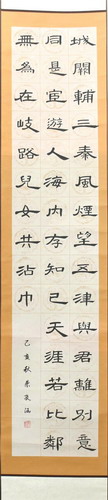 城闕輔三秦風煙望五津與君離別意
同是宦遊人海內存知己天涯若比鄰
無為在岐路兒女共沾巾
亥秋